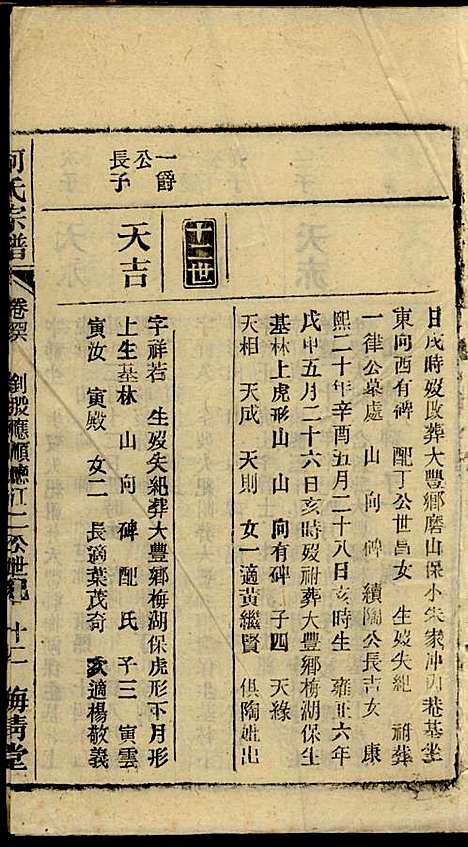 日戌時歿改葬大豐鄉磨山保小朱家冲內巷基坐
東向西有碑 配丁公世昌女 生歿失紀 祔葬
一律公墓處 山 向 碑 續陶公長吉女 康
熙二十年辛酉五月二十八日亥時生 雍正六年
戊申五月二十六日亥時歿祔葬大豐鄉梅湖保生
基林上虎形山 山 向有碑 子四 天緣
天相 天成 天則 女一適黃繼賢 俱陶姓出
十二世
一爵
公
長子
天吉
字祥若 生歿失紀葬大豐鄉梅湖保虎形下月形
上生基林 山 向 碑 配 氏 子三 寅雲
寅汝 寅殿 女二 長適葉茂奇 次適楊敬義
何氏宗譜 卷 劉 應順 江二公世紀 十二 梅靖堂